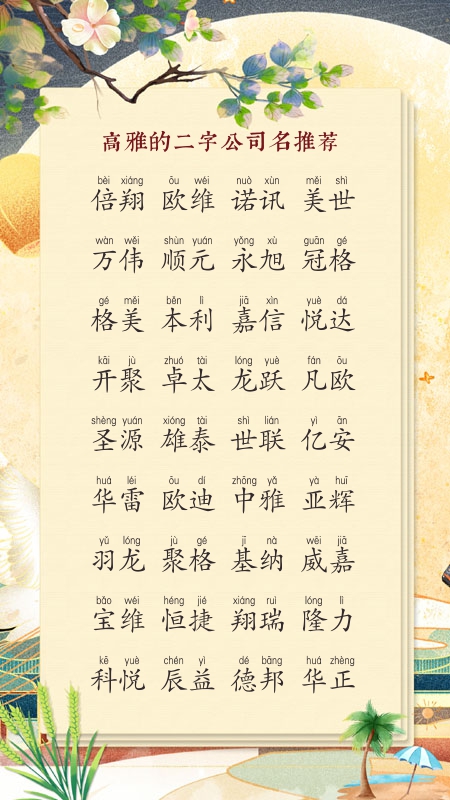 高雅的二字公司名推荐
bèi xiáng ōu wéi nuò xùn měi shì
倍翔 欧维 诺讯 美世
wàn wěi shùn yuán yǒng xù guān gé
万伟 顺元 永旭 冠格
gé měi běn lì jiā xìn yuè dá
格美 本利 嘉信 悦达
kāi jù zhuó tài lóng yuè fán ōu
开聚 卓太 龙跃 凡欧
shèng yuán xióng tài shì lián yì ān
圣源 雄泰 世联 亿安
huá léi ōu dí zhōng yǎ yà huī
华雷 欧迪 中雅 亚辉
yǔ lóng jù gé jī nà wēi jiā
羽龙 聚格 基纳 威嘉
bǎo wéi héng jié xiáng ruì lóng lì
宝维 恒捷 翔瑞 隆力
kē yuè chén yì dé bāng huá zhèng
科悦 辰益 德邦 华正